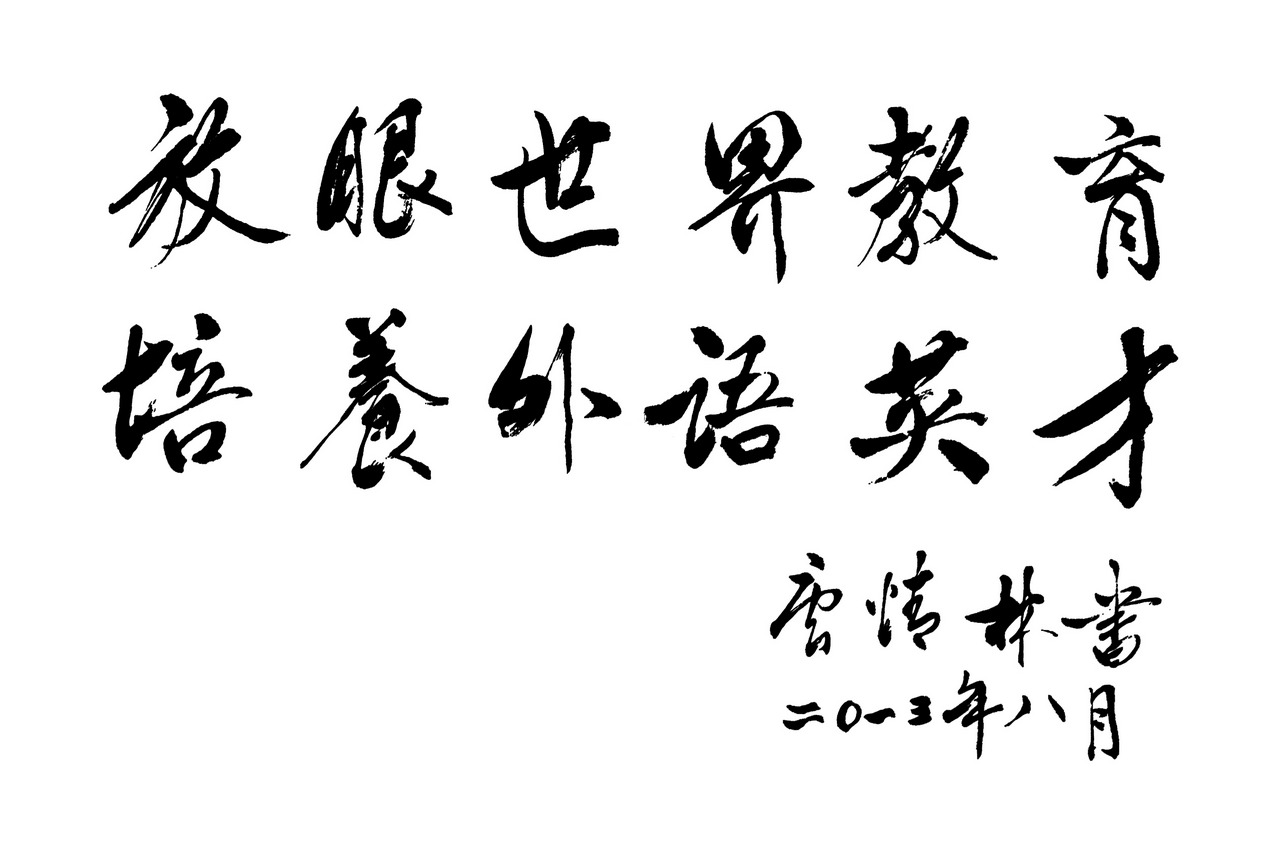 放眼世界教育
培養外语英才
雲情林書
二〇一三年八月